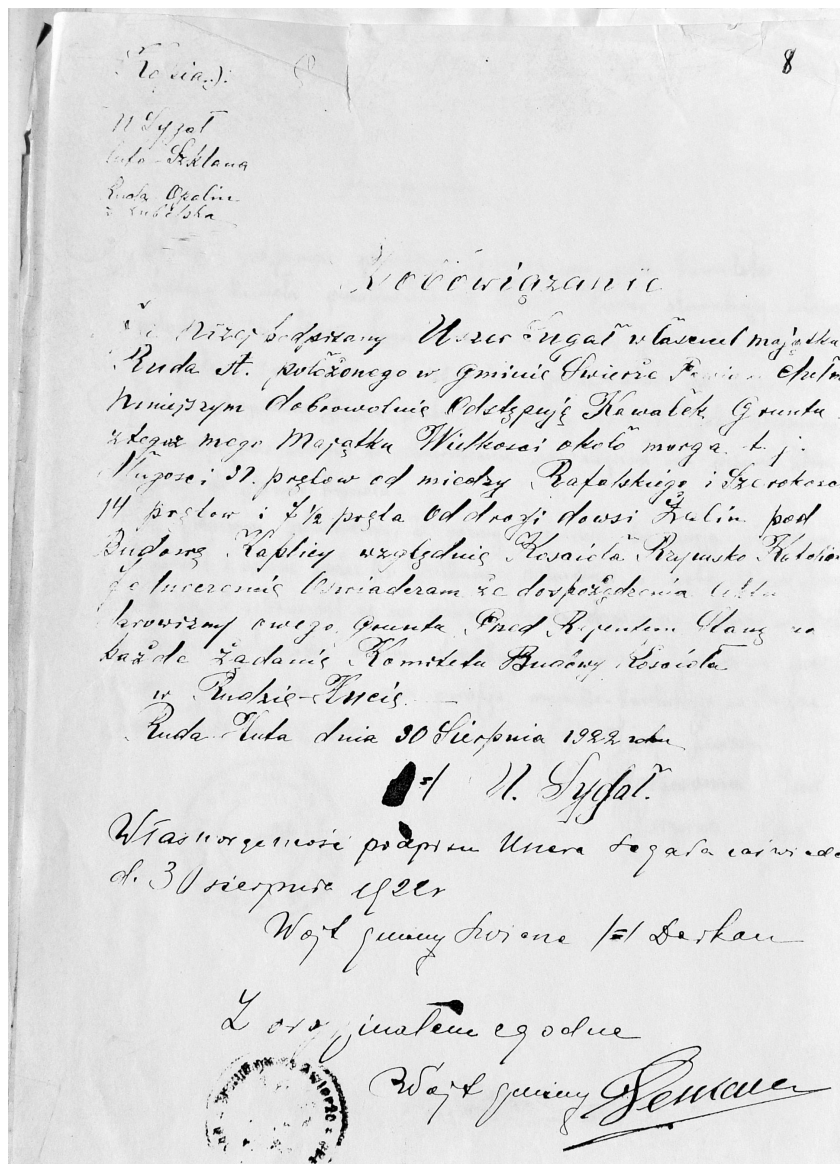 8
(Kopia):
U Sygał
Huta-Szklana
Ruda Opalin
z. Lubelska
Zobowiązanie
Ja Niżej podpisany Uszer Sygał własciciel majątku
Ruda st. położonego w Gminie Swierże Powiat Chełm
Niniejszym dobrowolnie Odstępuję Kawałek Gruntu
z tegoz mego Majątku Wielkosci około morga t. j.
Długosci 31. prętow od miedzy Rafalskiego i Szerokosci
14 prętow i 7 1/2 pręta Od drogi dowsi Żalin pod
Budowę Kaplicy względnię Koscioła Rzymsko Katolic
Oswiadczam że dosporządzenia Aktu
Darowizny owego Gruntu Przed Rejentem Stanę na
każde Żądanię Komitetu Budowy Koscioła
w Rudzię-Hucię
Ruda Huta dnia 30 Sierpnia 1922 roku
/=/ U. Sygał.
Własnoręczność podpisu Uszera Segała zaświadc
d. 30 sierpnia 1922 r
Wójt gminy Swierże /=/
Z oryginałem zgodne
Wójt gminy